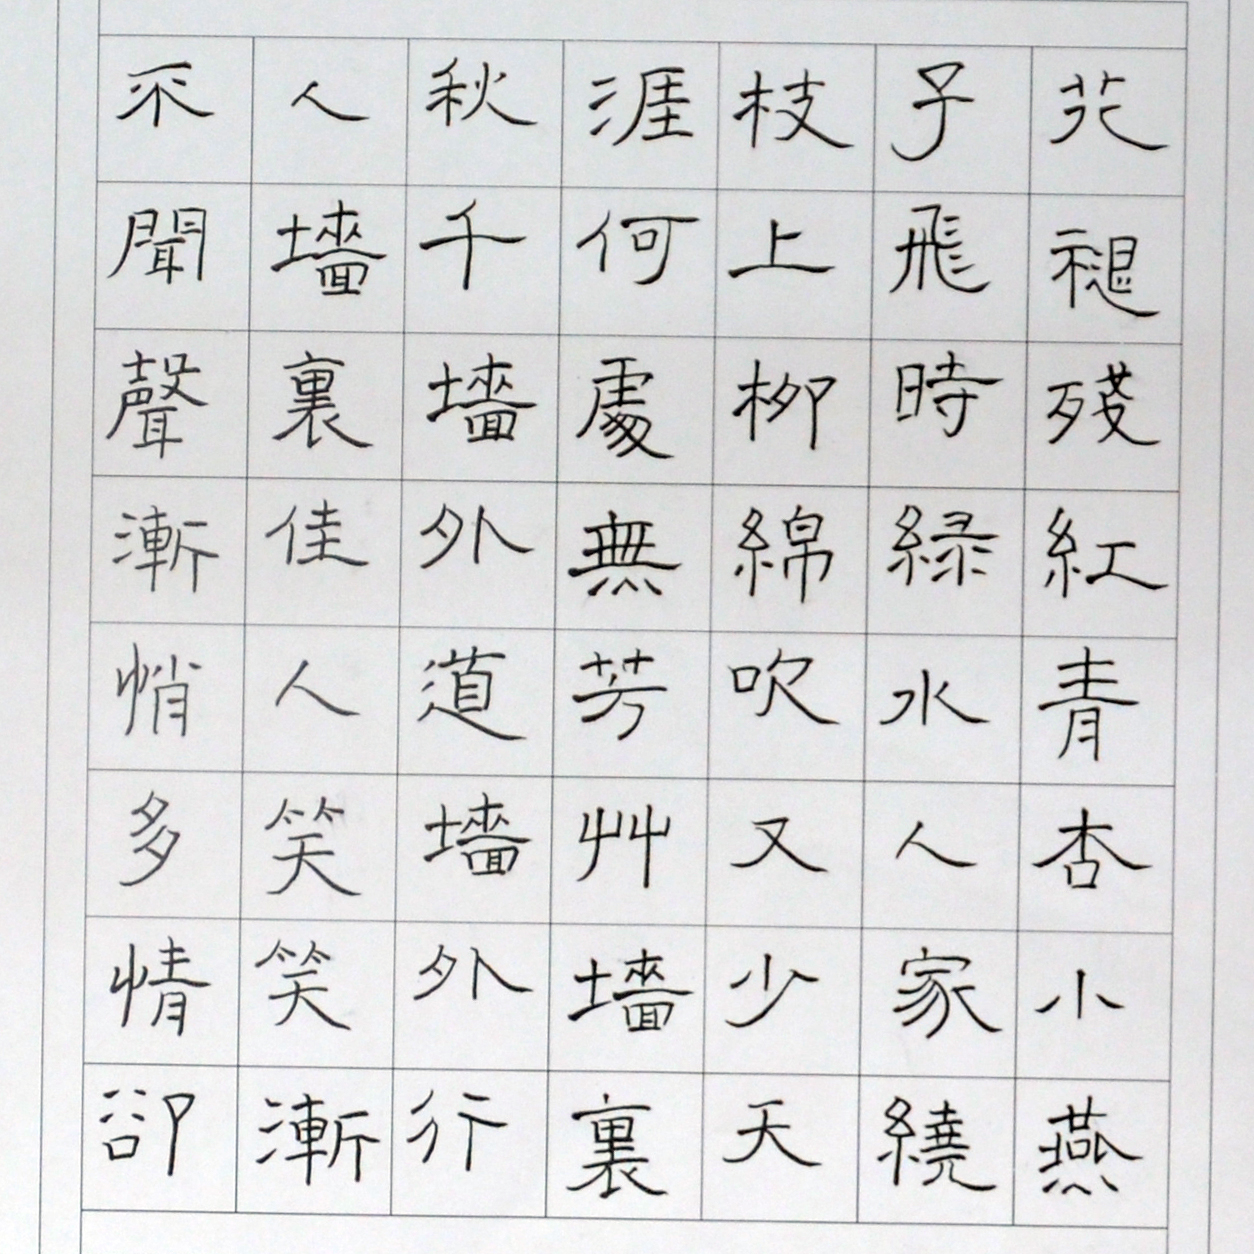 花褪殘紅青杏小燕
子飛時緑水人家繞
枝上柳綿吹又少天
涯何處無芳艸墻裏
秋千墻外道墻外行
人墻裏佳人笑笑漸
不聞聲漸悄多情卻